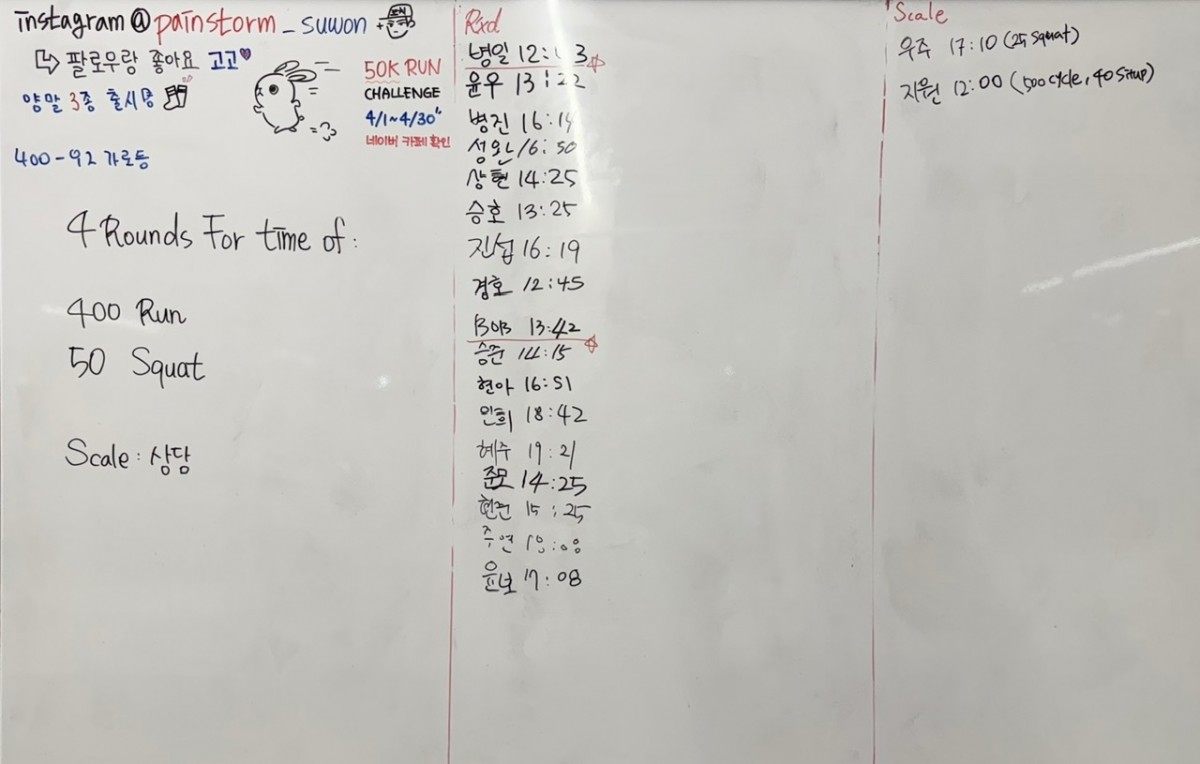 instagram @painstorm_suwon
↳ 팔로우랑 좋아요 고고♥
양말 3종 출시
400-92 가로등
50K RUN
CHALLENGE
4/1~4/30
네이버 카페 확인
4 Rounds For time of:
400 Run
50 Squat
Scale: 상담
Rxd
병일
윤우 13:22
병진
성완 16:50
상현 14:25
승호 13:25
진섭 16:19
경호 12:45
BOB 13:42
승준 14:15
현아 16:51
민희 18:42
혜주 19:21
준모 14:25
현준 15:25
주연
윤보 17:08
Scale
우주 17:10 (25 squat)
지원 12:00 (500 cycle, 40 situp)